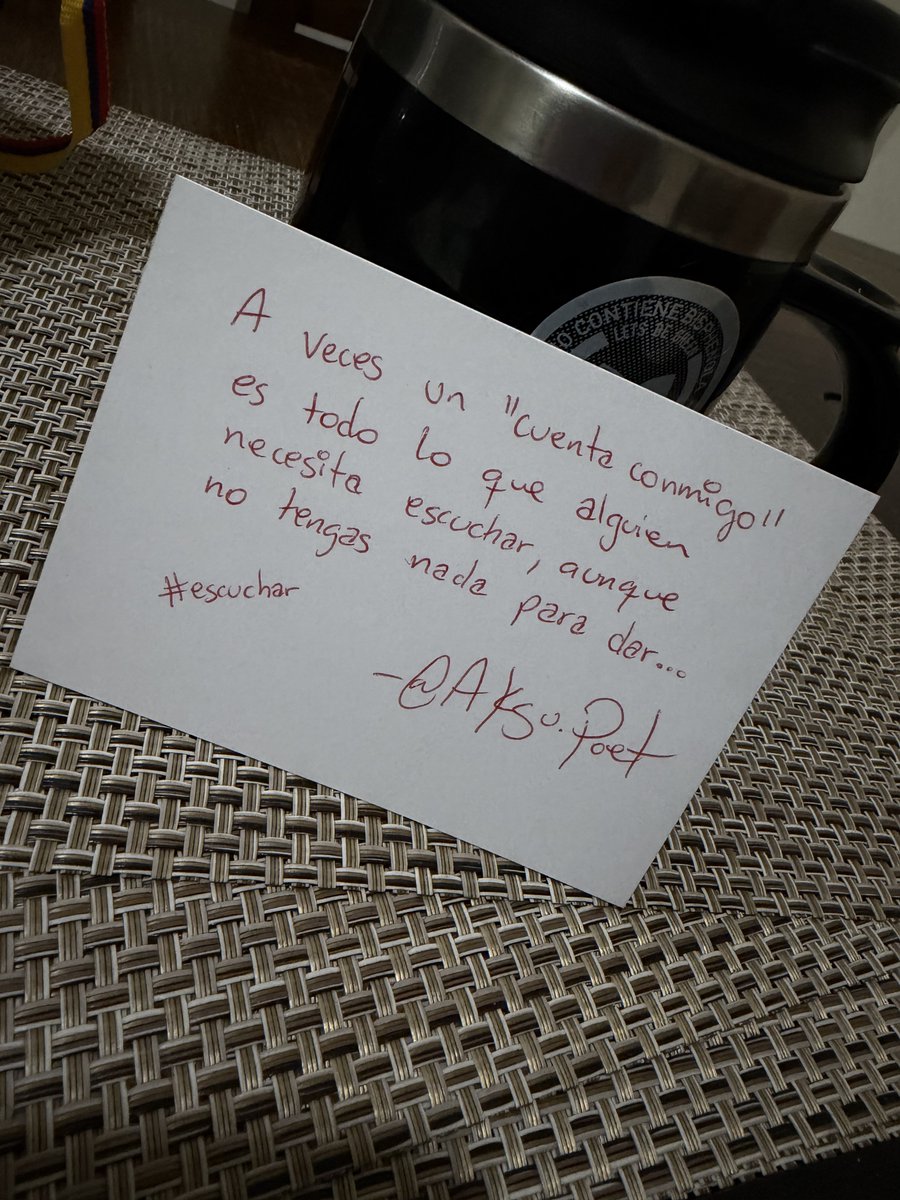 A veces un "cuenta conmigo"
es todo lo que alguien
necesita escuchar, aunque
no tengas nada para dar...
#escuchar
-@Aksu.Poet
CONTIENE
LET'S BE